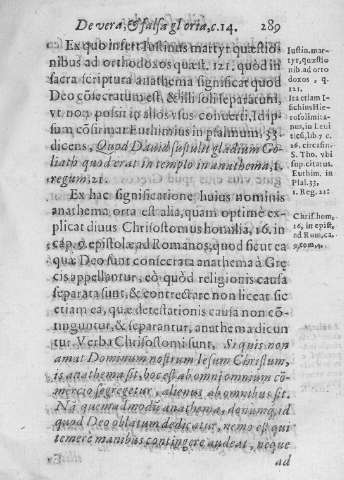 De vera, & falsa gloria, c. 14. 289
Ex quo infert Iustinus martyr quæstio
nibus ad orthodoxos quæst. 121. quòd in
sacra scriptura anathema significat quod
Deo cõsecratum est, & illi soli separatum,
vt non possit in alios vsus conuerti, Id ip-
sum cõfirmat Euthimius in psalmum, 33.
dicens, Quod Dauid sustulit gladium Go-
liath quod erat in templo in anathema, 1.
regum, 21.
Ex hac significatione huius nominis
anathema orta est alia, quam optimè ex-
plicat diuus Chrisostomus homilia, 16. in
cap. 9. epistolæ ad Romanos, quod sicut ea
quæ Deo sunt consecrata anathema à Græ
cis appellantur, eo quòd religionis causa
separata sunt, & contrectare non liceat sic
etiam ea, quæ detestationis causa non cõ-
tinguntur, & separantur, anathema dicun
tur. Verba Chrisostomi sunt, Si quis non
amat Dominum nostrum Iesum Christum,
is anathema sit, hoc est ab omni omnium cõ-
mercio segregetur, alienus ab omnibus sit.
Nã quemadmodũ anathema, donumq, id
quod Deo oblatum dedicatur, nemo est qui
temerè manibus contingere audeat, neque
ad
Iustin. mar-
tyr, quæstio
nib. ad orto
doxos, q.
121.
Ita etiam I-
sichius Hie-
rosolimi-
nus, in Leui
S. Tho. vbi
sup. citatus.
Euthim. in
Psal. 33.
1. Reg. 21.
Chrisost. hom,
16, in epist,
ad Rom, ca.